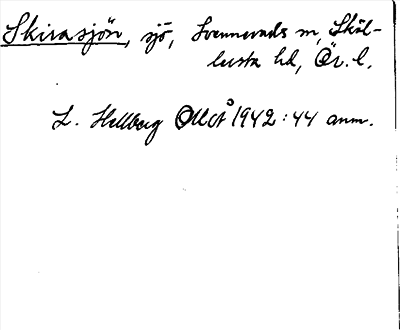 Skirasjön, sjö, Svennevads sn, Sköl-
lersta hd, Ör. l.
L. Hellberg OUÅ 1942:44 anm.